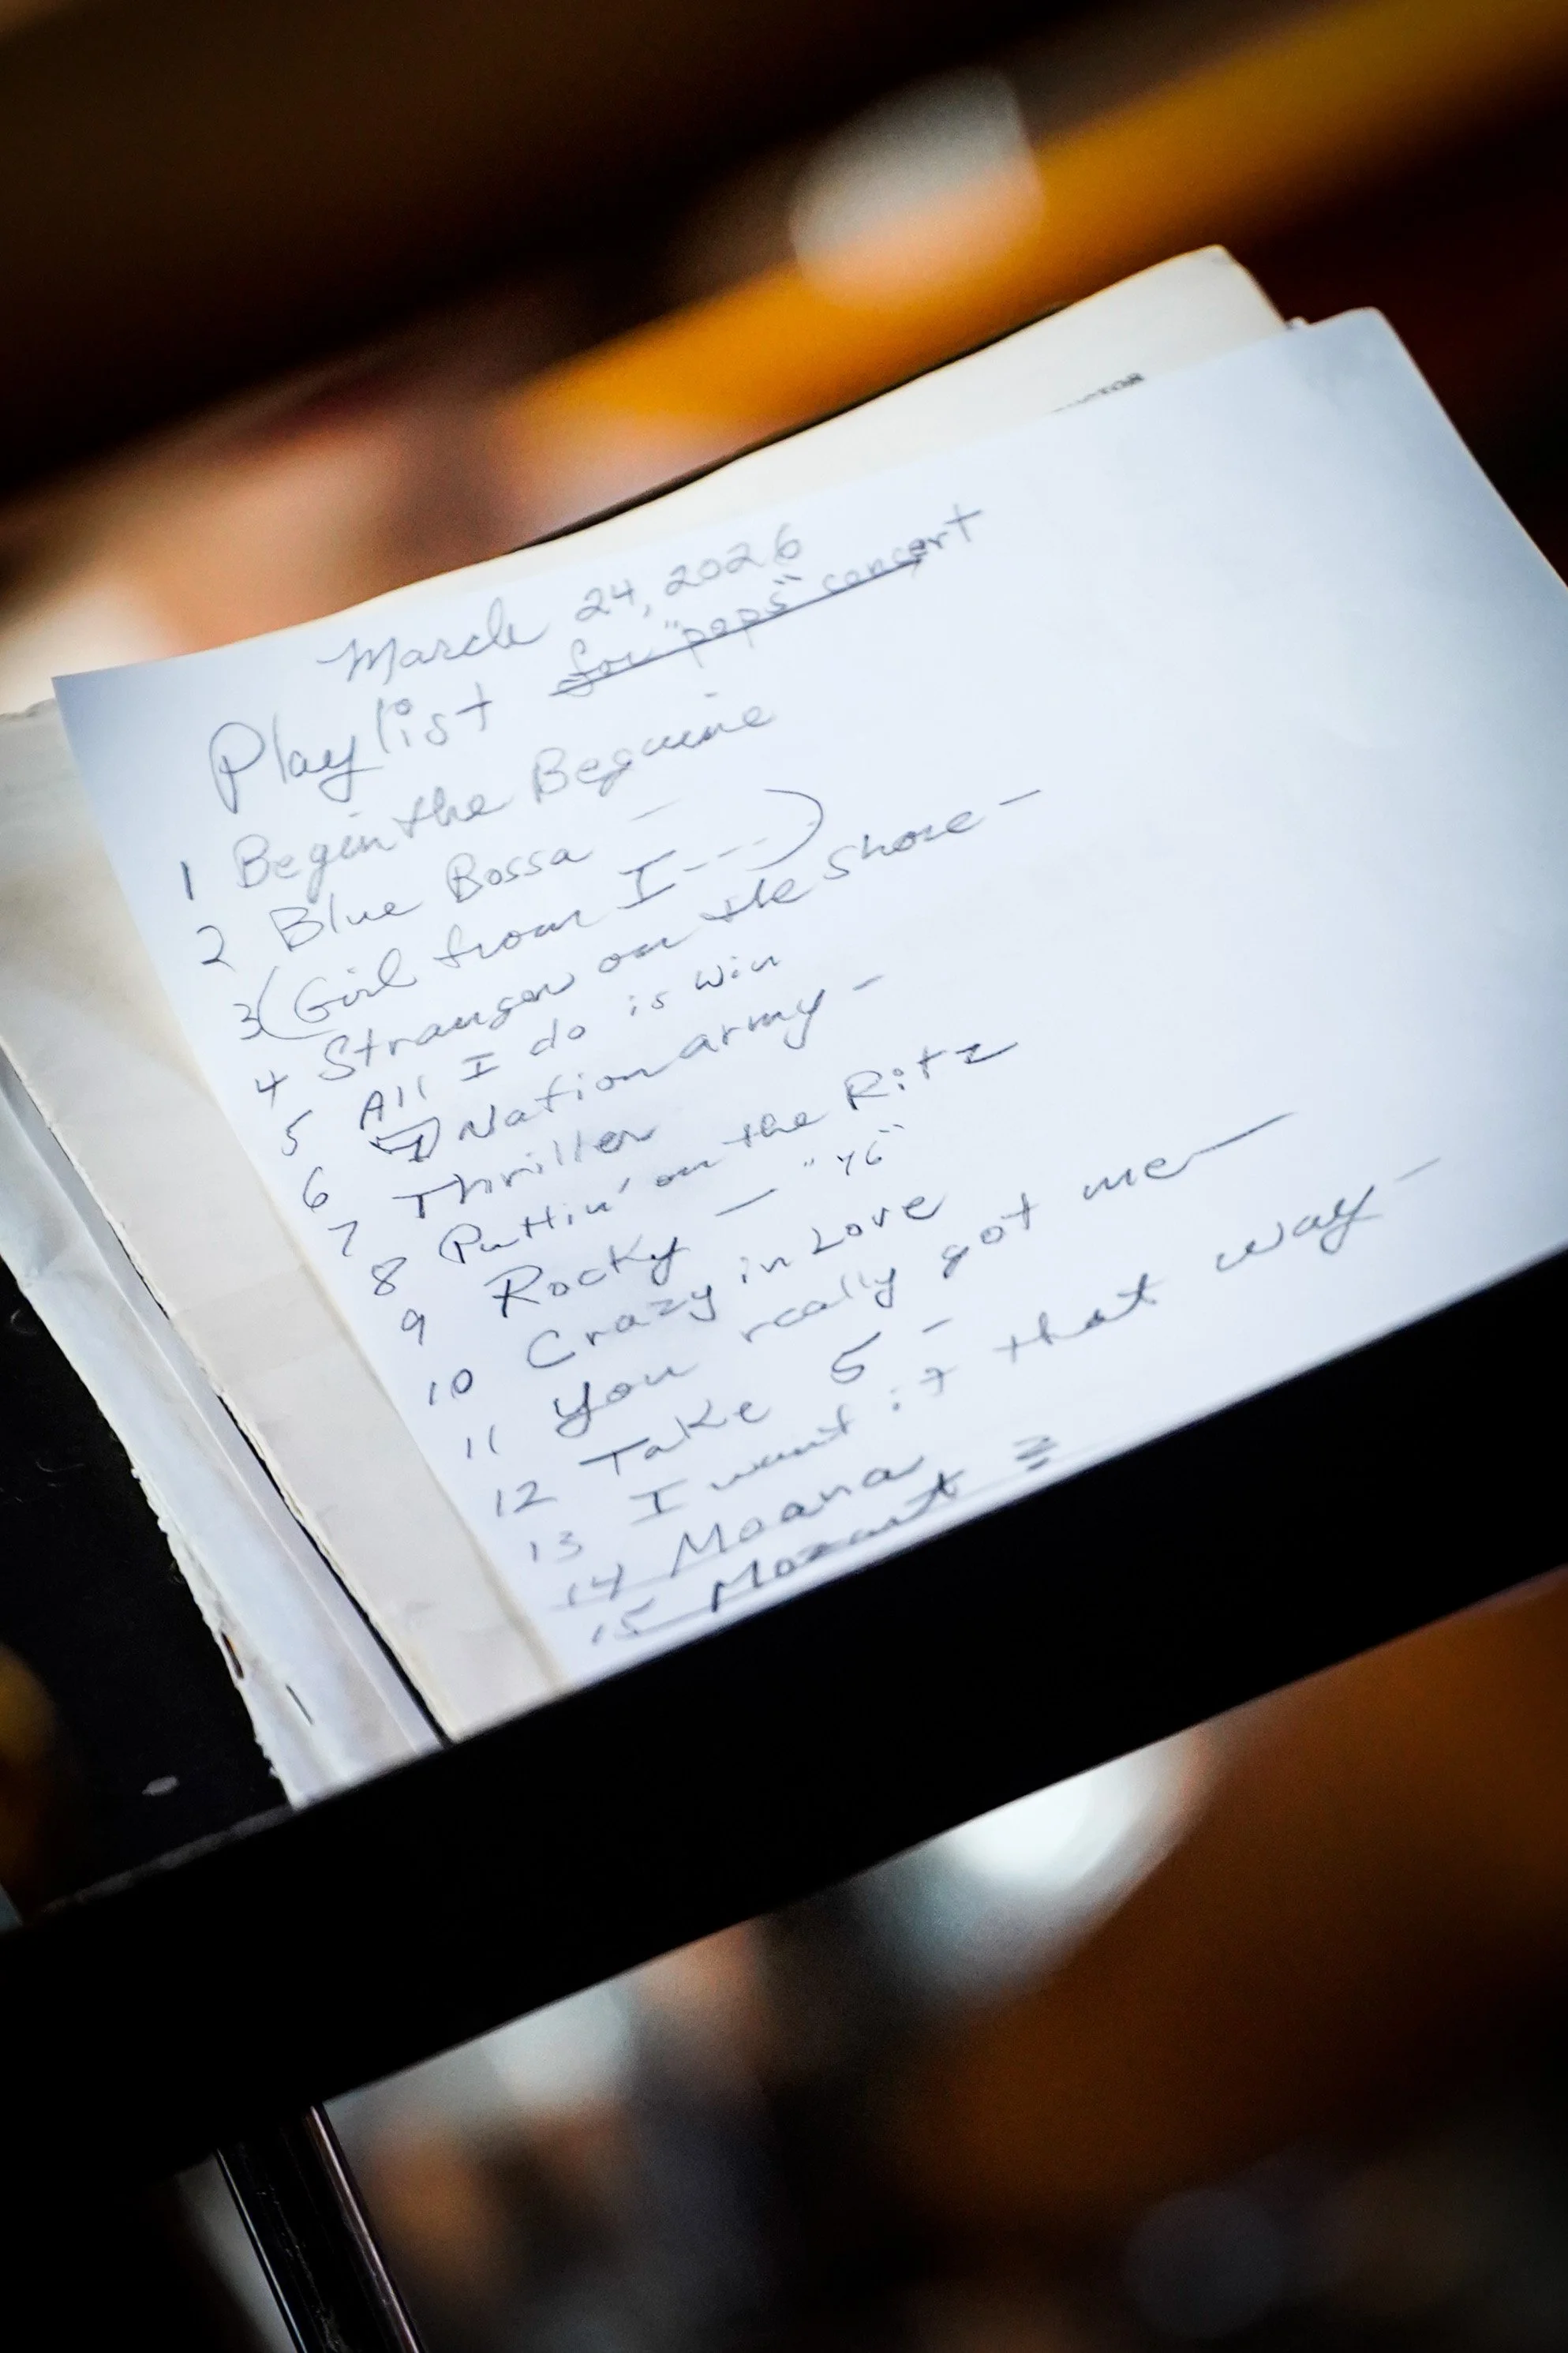 March 24, 2026
Playlist for "pops" concert
1 Begin the Beguine
2 Blue Bossa -
3 (Girl from I---)
4 Stranger on the Shore -
5 All I do is win
6 7 Nation army -
7 Thriller
8 Puttin' on the Ritz
9 Rocky - "76"
10 Crazy in Love
11 You really got me -
12 Take 5 -
13 I want it that way -
14 Moana
15 Mozart